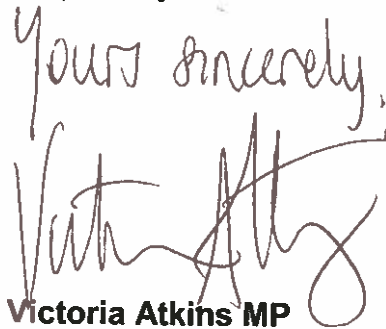 Yours sincerely,
Victoria Atkins
Victoria Atkins MP